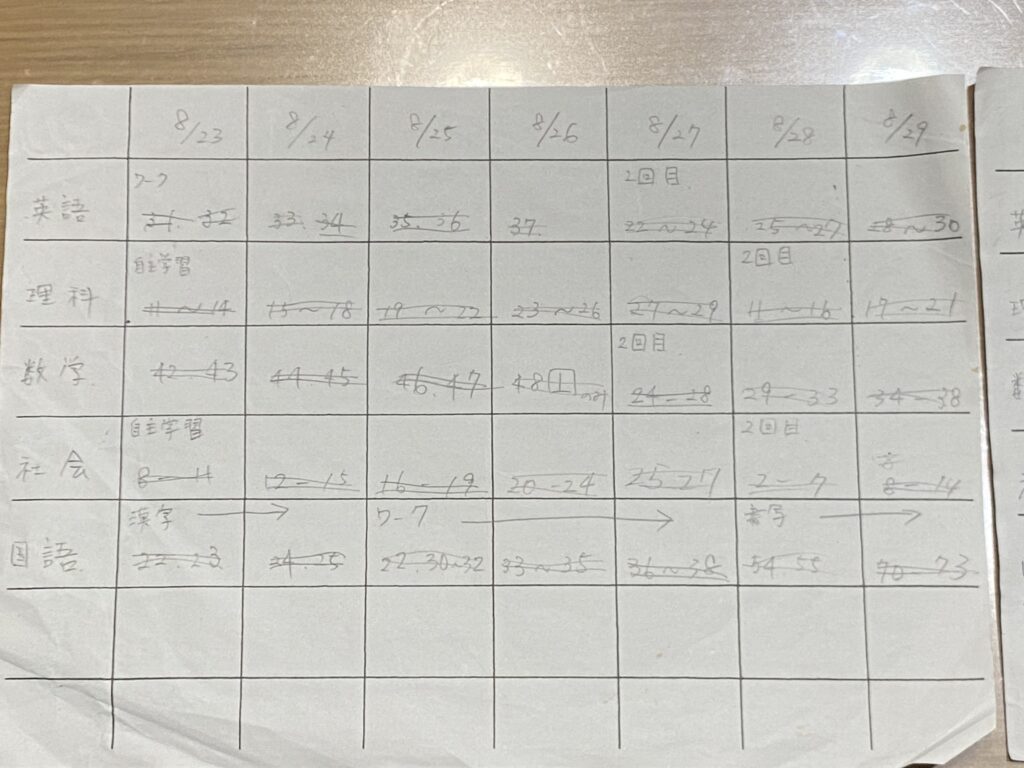 8/23 8/24 8/25 8/26 8/27 8/28 8/29
ワーク 2回目
英語 31. 32 33. 34 35. 36 37. 22〜24 25〜27 28〜30
自主学習 2回目
理科 11〜14 15〜18 19〜22 23〜26 27〜29 11〜16 17〜21
2回目
数学 42-43 44-45 46.47 48 1 のみ 24-28 29-33 34-38
自主学習 2回目
社会 8-11 12-15 16-19 20-24 25-27 2-7 8-14
漢字 → ワーク → 書写 →
国語 22.23 24-25 22.30〜32 33〜35 36〜38 54.55 70-73